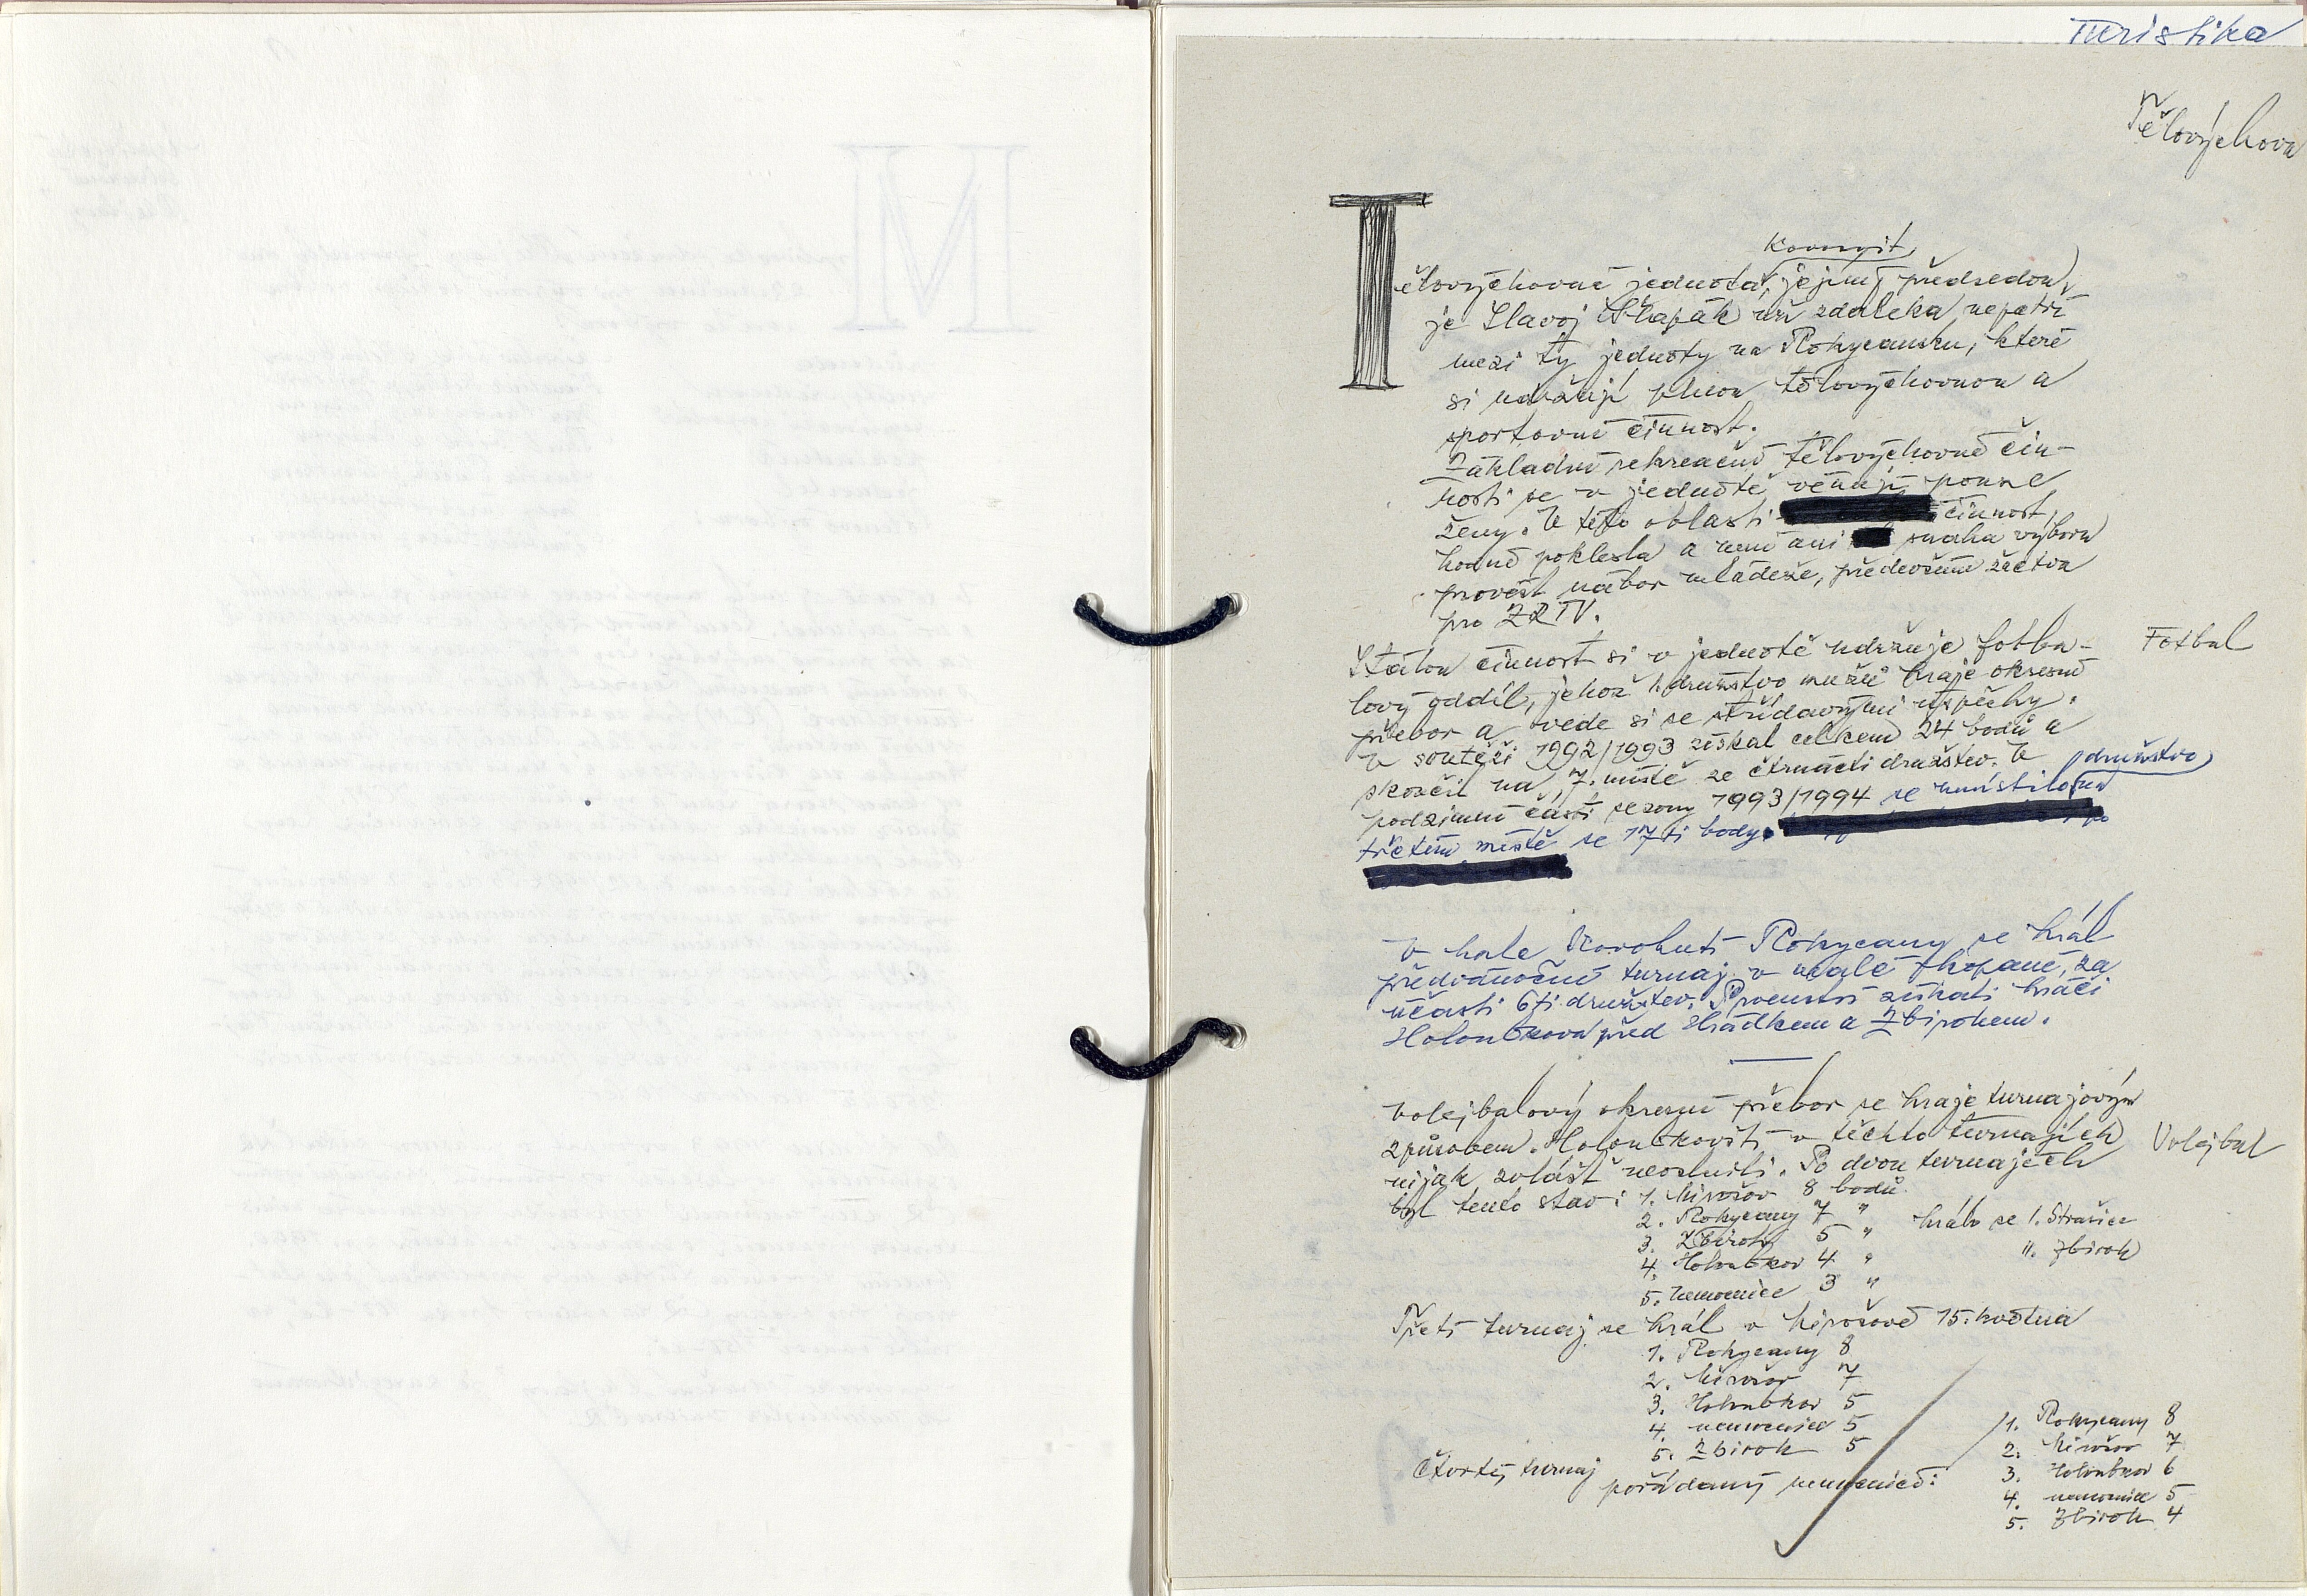 Turistika
Tělovýchova
Kovosvit,
Tělovýchovná jednota, jejímž předsedou,
je Slavoj Šlapák už zdaleka nepatří
mezi ty jednoty na Rokycansku, které
si udržují plnou tělovýchovnou a
sportovní činnost.
Základní rekreační tělovýchovné čin-
nosti se v jednotě věnují pouze
ženy. V této oblasti činnost,
hodně poklesla a není ani snaha výboru
provést nábor mládeže, především žactva
pro ZRTV.
Stálou činnost si v jednotě udržuje fotba-
Fotbal
lový oddíl, jehož 1. družstvo mužů hraje okresní
přebor a vede si se střídavými úspěchy.
V soutěži 1992/1993 získal celkem 24 bodů a
skončil na 7. místě ze čtrnácti družstev. V
družstvo
podzimní části sezony 1993/1994 se umístilo na
třetím místě se 17ti body.
V hale Kovohutí Rokycany se hrál
předvánoční turnaj v malé kopané, za
účasti 6ti družstev. Prvenství získali hráči
Holoubkova před Hrádkem a Zbirohem.
Volejbalový okresní přebor se hraje turnajovým
způsobem. Holoubkovští v těchto turnajích
Volejbal
nijak zvlášť neoslnili. Po dvou turnajech
byl tento stav: 1. Mirošov 8 bodů
2. Rokycany 7 "
hrálo se 1. Strašice
3. Zbiroh 5 "
II. Zbiroh
4. Holoubkov 4 "
5. nemocnice 3 "
Třetí turnaj se hrál v Mirošově 15. května
1. Rokycany 8
2. Mirošov 7
3. Holoubkov 5
4. nemocnice 5
5. Zbiroh 5
Čtvrtý turnaj
pořádaný nemocnicí:
1. Rokycany 8
2. Mirošov 7
3. Holoubkov 6
4. nemocnice 5
5. Zbiroh 4